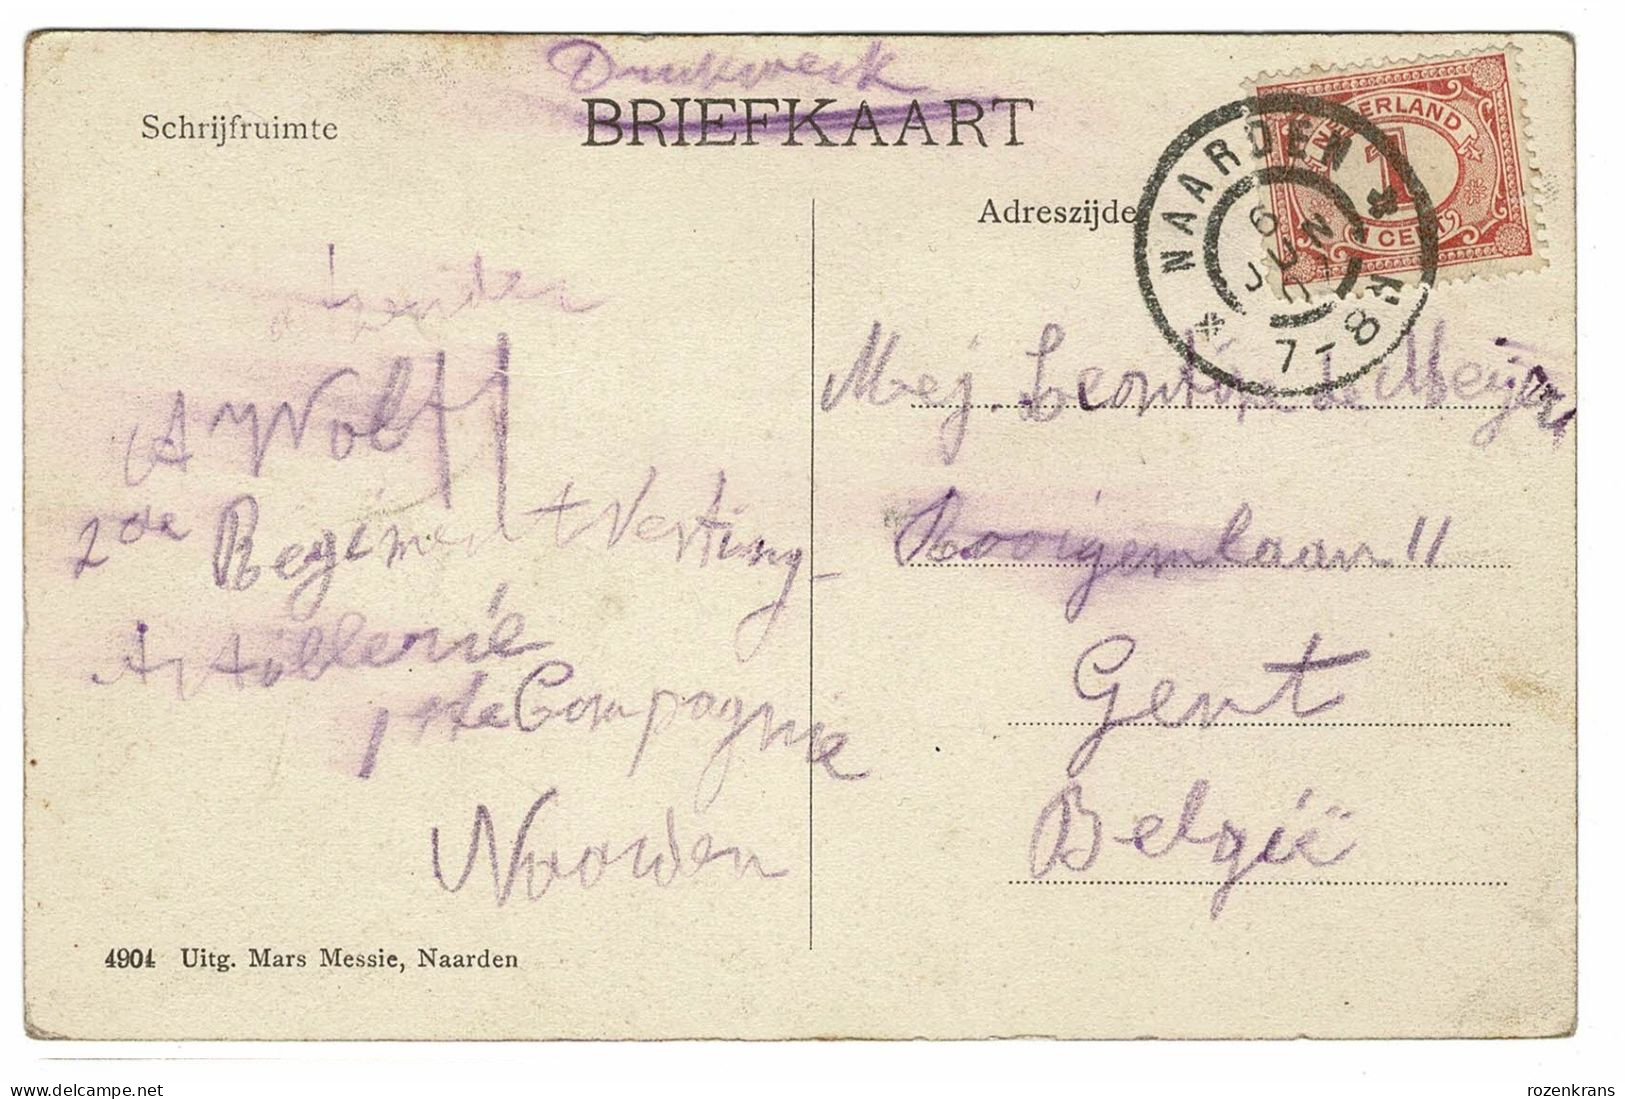 Drukwerk
BRIEFKAART
Schrijfruimte
Adreszijde
NEDERLAND
1
CENT
NAARDEN
6 JUN
7-8
afzender
A Wolff
2de Regiment Vesting
Artillerie
1ste Compagnie
Naarden
Mej. Leontine de Meijer
Kooigemlaan 11
Gent
België
4904 Uitg. Mars Messie, Naarden
delcampe.net
rozenkrans